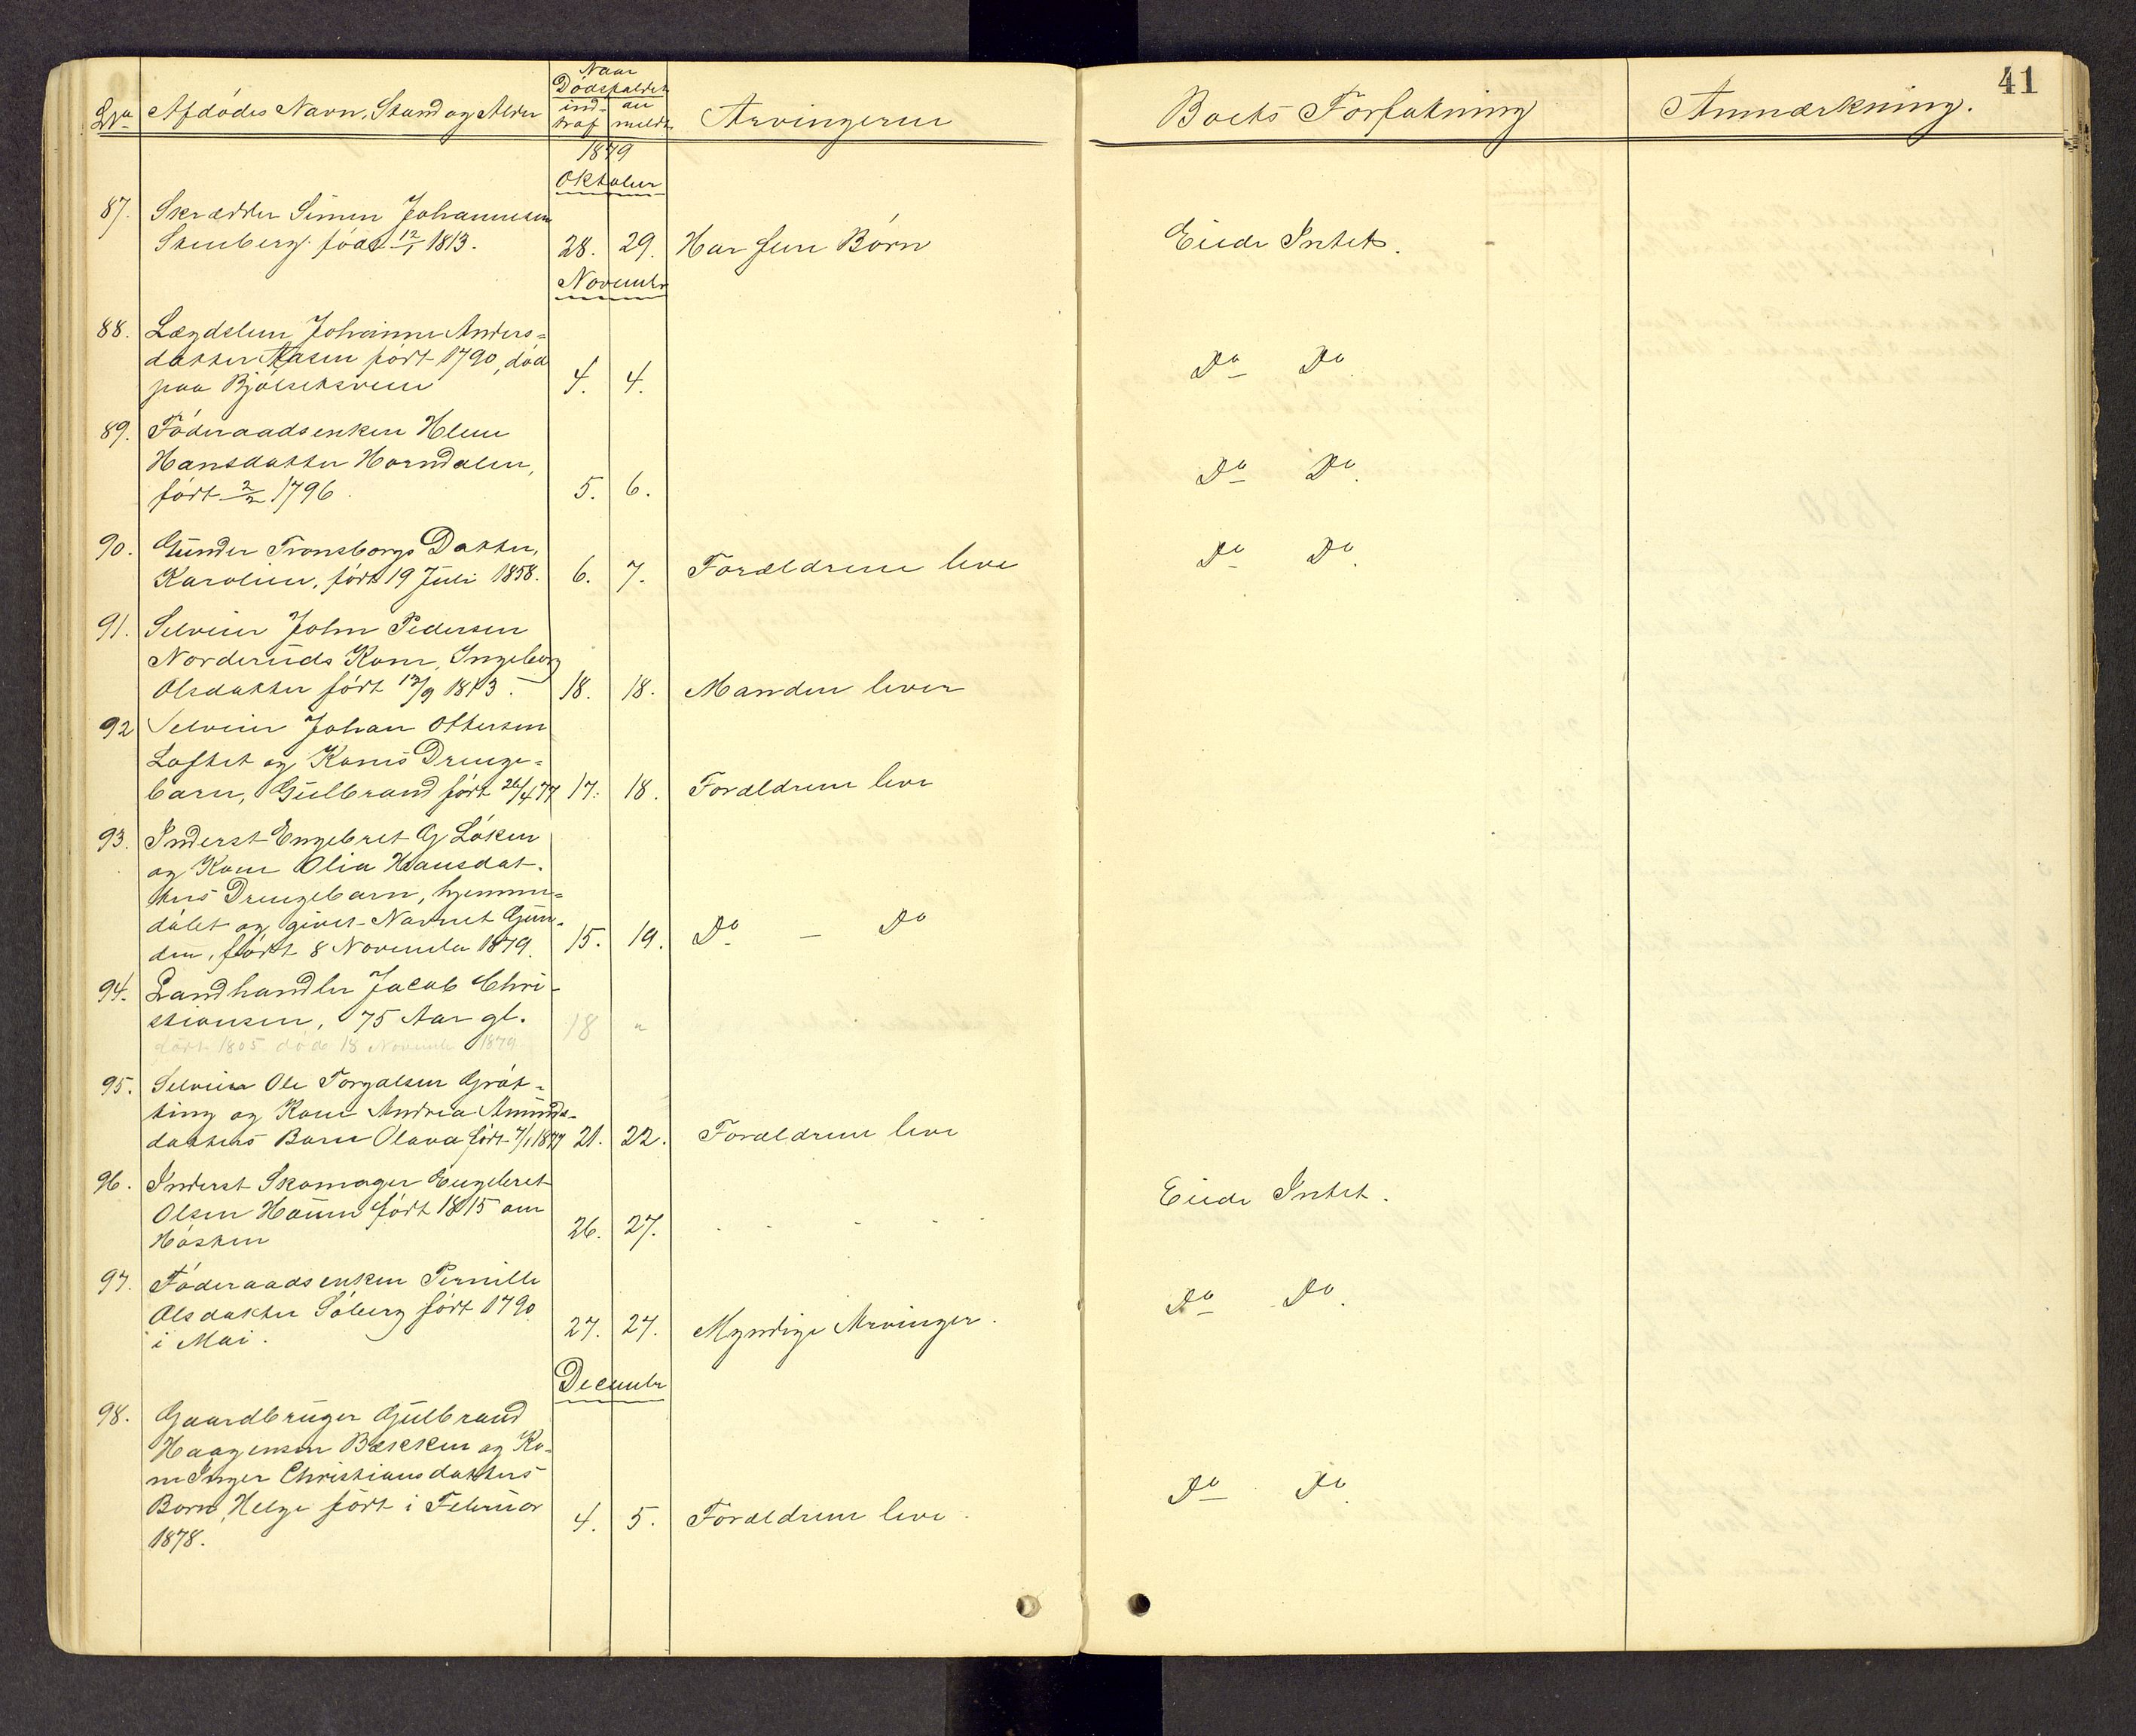 41
Lno Afdødes Navn, Stand og Alder Naar Dødsfaldet ind-traf an meldt Arvingerne Boets Forfatning Anmærkning.
1879
Oktober
87. Skrædder Simen Johannesen
Stenberg. født 12/1 1813. 28. 29. Har flere Børn Eiede Intet.
November
88. Lægdslem Johanne Anders=
datter Aasen født 1790, død
paa Bjølsetsveen 4. 4. Do Do
89. Føderaadsenken Helene
Hansdatter Horndalen,
født 2/2 1796. 5. 6. Do Do.
90. Gunder Tronsborgs Datter,
Karoline, født 19 Juli 1858. 6. 7. Forældrene leve Do Do.
91. Selveier John Pedersen
Norderuds Kone, Ingeborg
Olsdatter født 12/9 1813. 18. 18. Manden lever
92 Selveier Johan Ottersen
Loftet og Kones Drenge-
barn, Gulbrand født 26/4 77 17. 18. Forældrene leve
93. Inderst Engebret G Løken
og Kone Olia Hansdat-
ters Drengebarn, hjemme=
døbt og givet Navnet Gun-
der, født 8 November 1879. 15. 19. Do — Do
94. Landhandler Jacob Chri-
stiansen, 75 Aar gl. 18 "
født 1805 død 18 November 1879
95. Selveier Ole Torgalsen Grøt-
ting og Kone Andrea Amunds-
datters Barn Olava født 7/1 1877 21. 22. Forældrene leve
96. Inderst Skomager Engebret
Olsen Haugen født 1815 om
Høsten 26. 27. Eiede Intet.
97. Føderaadsenken Pernille
Olsdatter Søberg født 1790
i Mai. 27. 27. Myndige Arvinger. Do Do.
December
98. Gaardbruger Gulbrand
Haagensen Bækken og Ko-
ne Inger Christiansdatters
Barn, Helge født i Februar
1878. 4. 5. Forældrene leve. Do Do.